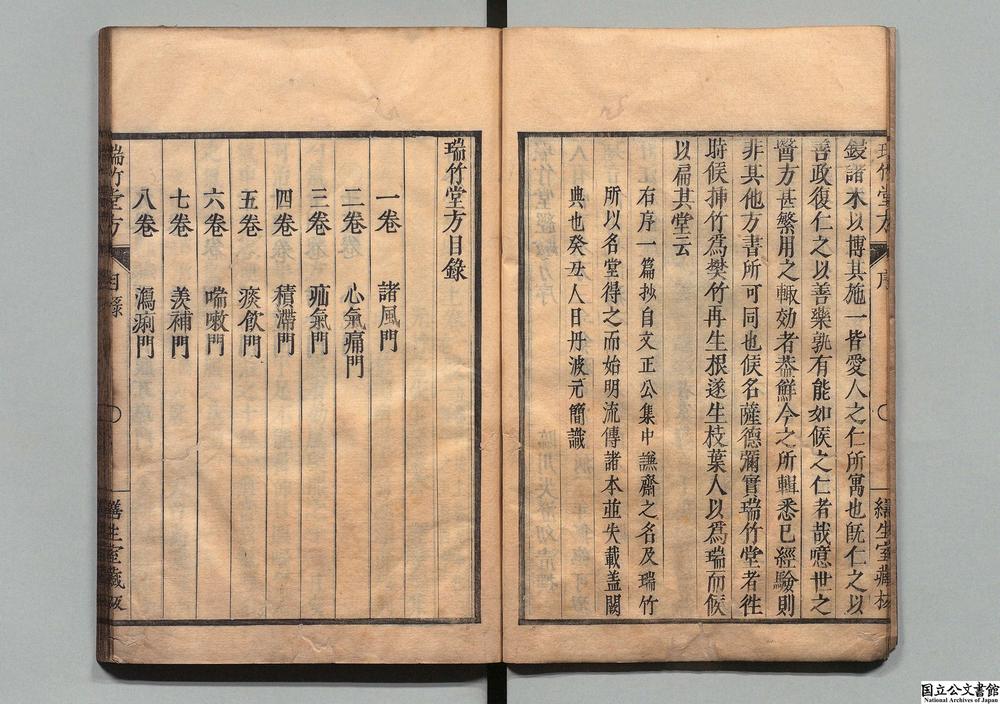 鋟諸木以博其施一皆愛人之仁所寓也旣仁之以
善政復仁之以善藥孰有能如候之仁者哉噫世之
醫方甚繁用之輙効者葢鮮今之所輯悉已經驗則
非其他方書所可同也候名薩德彌實瑞竹堂者徃
時候揷竹爲樊竹再生根遂生枝葉人以爲瑞而候
以扁其堂云
右序一篇抄自文正公集中謙齋之名及瑞竹
所以名堂得之而始明流傳諸本並失載盖闕
典也癸丑人日丹波元簡識
瑞竹堂方 序 〇 繕生室藏板
瑞竹堂方目錄
一卷 諸風門
二卷 心氣痛門
三卷 疝氣門
四卷 積滯門
五卷 痰飮門
六卷 喘嗽門
七卷 羡補門
八卷 瀉痢門
瑞竹堂方 目錄 〇 繕生室藏板
国立公文書館
National Archives of Japan